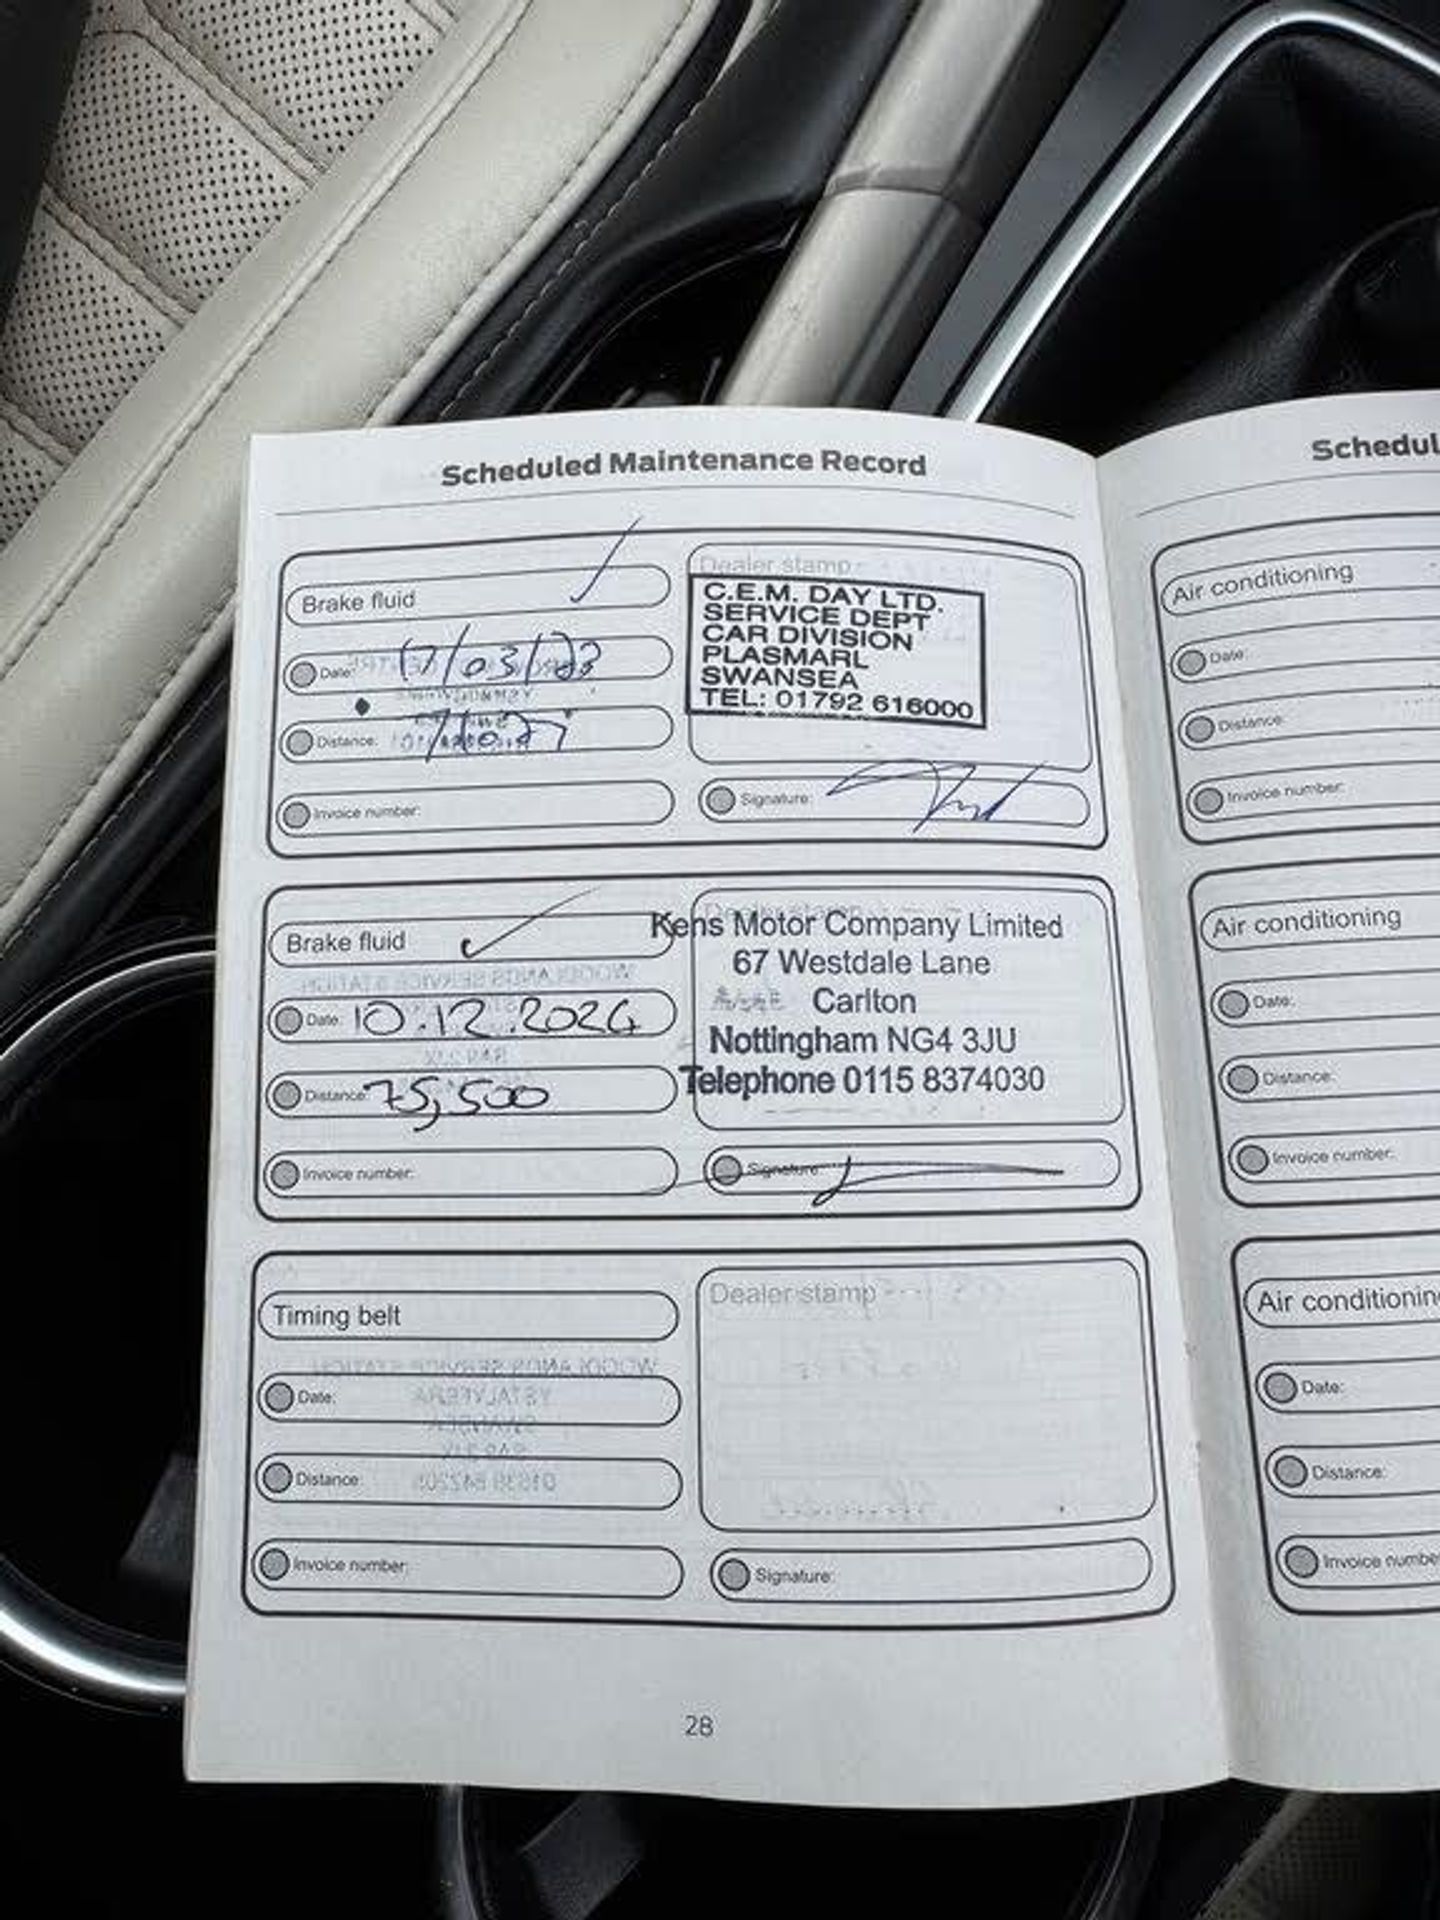 Scheduled Maintenance Record
Brake fluid
Date: 17/03/23
Distance:
Invoice number:
Dealer stamp
C.E.M. DAY LTD.
SERVICE DEPT
CAR DIVISION
PLASMARL
SWANSEA
TEL: 01792 616000
Signature:
Brake fluid
Date: 10.12.2024
Distance: 75,500
Invoice number:
Dealer stamp
Kens Motor Company Limited
67 Westdale Lane
Carlton
Nottingham NG4 3JU
Telephone 0115 8374030
Signature:
Timing belt
Date:
Distance:
Invoice number:
Dealer stamp
Signature:
28
Schedul
Air conditioning
Date:
Distance:
Invoice number:
Air conditioning
Date:
Distance:
Invoice number:
Air conditionin
Date:
Distance:
Invoice numbe